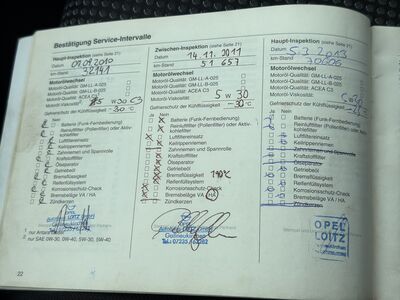 Bestätigung Service-Intervalle
Haupt-Inspektion (siehe Seite 21)
Datum 09.09.2010
km-Stand 32141
Motorölwechsel
Motoröl-Qualität: GM-LL-A-025
Motoröl-Qualität: GM-LL-B-025
Motoröl-Qualität: ACEA C3
Motoröl-Viskosität: 5 W 30 C3
Gefrierschutz der Kühlflüssigkeit -30 °C
Ja Nein
Batterie (Funk-Fernbedienung)
Reinluftfilter (Pollenfilter) oder Aktivkohlefilter
Luftfiltereinsatz
Keilrippenriemen
Zahnriemen und Spannrolle
Kraftstofffilter
Ölseparator
Getriebeöl
Bremsflüssigkeit
Reifenfüllsystem
Korrosionsschutz-Check
Bremsbeläge VA / HA
Zündkerzen
1 nur Antara Diesel
2 nur SAE 0W-30, 0W-40, 5W-30, 5W-40
22
Zwischen-Inspektion (siehe Seite 21)
Datum 14.11.2011
km-Stand 51 657
Motorölwechsel
Motoröl-Qualität: GM-LL-A-025
Motoröl-Qualität: GM-LL-B-025
Motoröl-Qualität: ACEA C3
Motoröl-Viskosität 5 W 30
Gefrierschutz der Kühlflüssigkeit -30 °C
Ja Nein
Batterie (Funk-Fernbedienung)
Reinluftfilter (Pollenfilter) oder Aktivkohlefilter
Luftfiltereinsatz
Keilrippenriemen
Zahnriemen und Spannrolle
Kraftstofffilter
Ölseparator
Getriebeöl
Bremsflüssigkeit
Reifenfüllsystem
Korrosionsschutz-Check
Bremsbeläge VA / HA
Zündkerzen
Haupt-Inspektion (siehe Seite 21)
Datum 5.3.2013
km-Stand
Motorölwechsel
Motoröl-Qualität: GM-LL-A-025
Motoröl-Qualität: GM-LL-B-025
Motoröl-Qualität: ACEA C3
Motoröl-Viskosität
Gefrierschutz der Kühlflüssigkeit
Ja Nein
Batterie (Funk-Fernbedienung)
Reinluftfilter (Pollenfilter) oder Aktivkohlefilter
Luftfiltereinsatz
Keilrippenriemen
Zahnriemen und Spannrolle
Kraftstofffilter
Ölseparator
Getriebeöl
Bremsflüssigkeit
Reifenfüllsystem
Korrosionsschutz-Check
Bremsbeläge VA / HA
Zündkerzen
OPEL
LOITZ